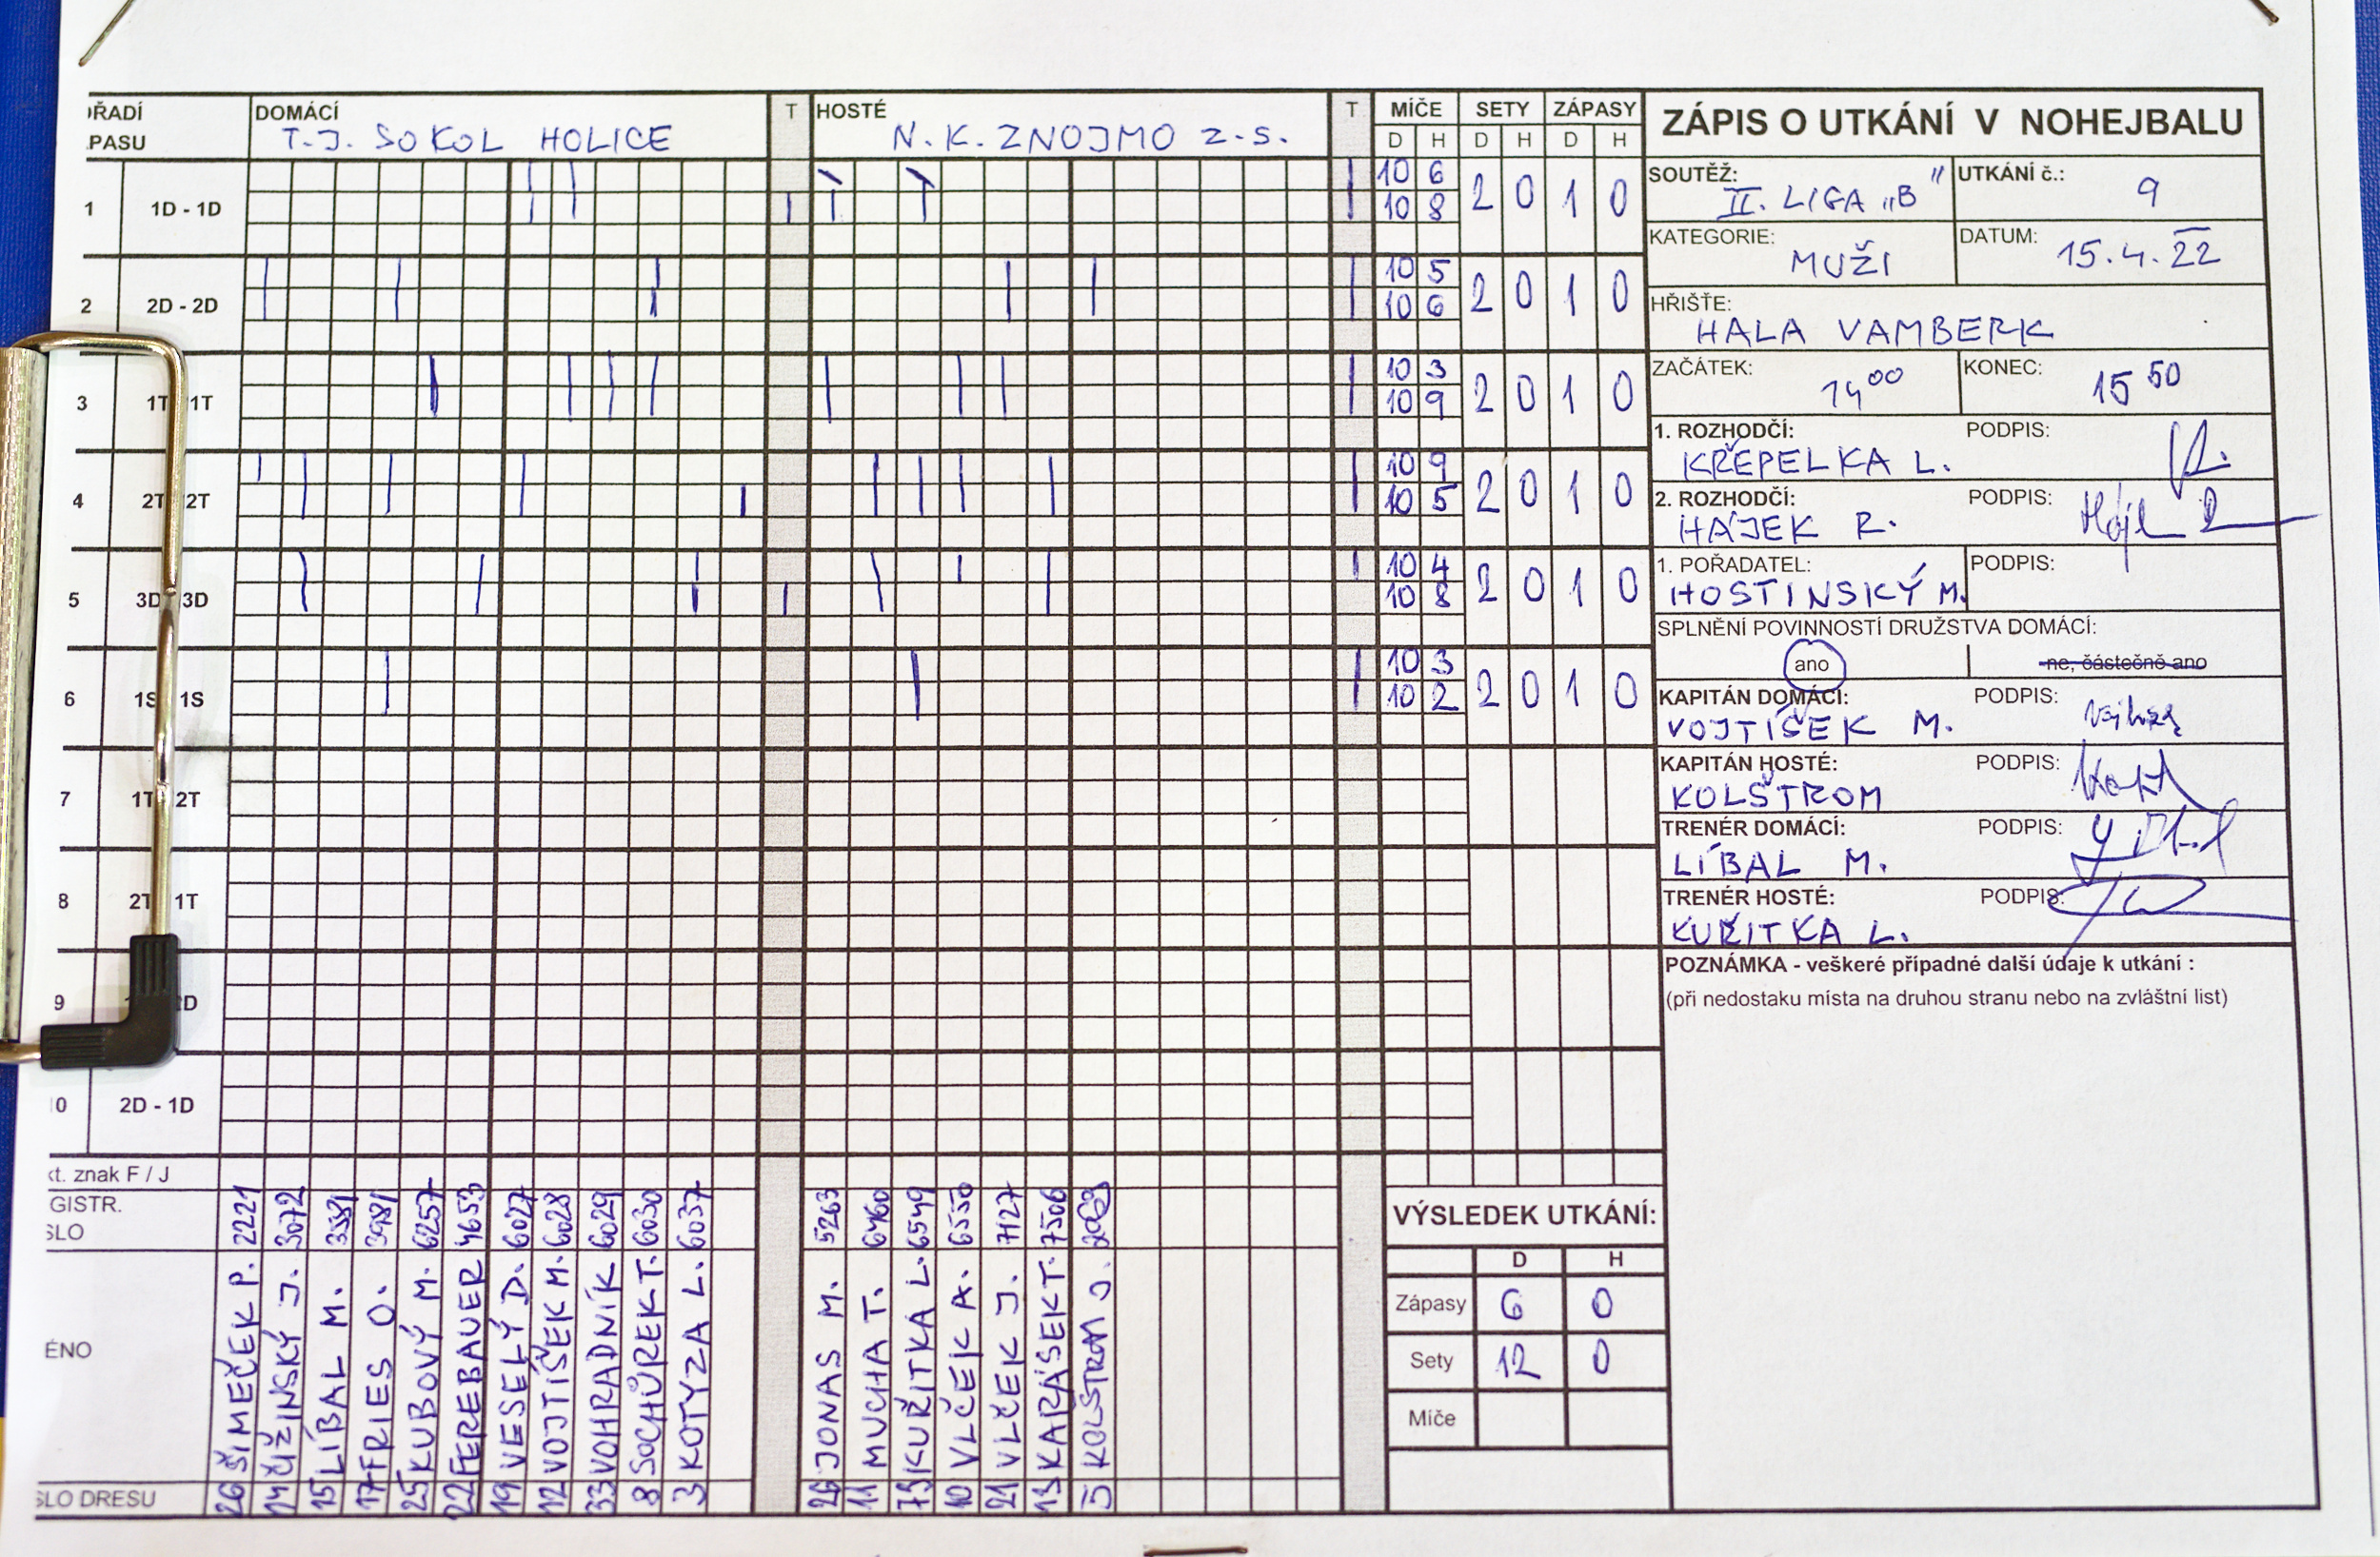 ŘADÍ
PASU
DOMÁCÍ
T.J. SOKOL HOLICE
T
HOSTÉ
N.K. ZNOJMO Z.S.
T
MÍČE SETY ZÁPASY
D H D H D H
1 1D - 1D 10 6 2 0 1 0
10 8
2 2D - 2D 10 5 2 0 1 0
10 6
3 1T 1T 10 3 2 0 1 0
10 9
4 2T 2T 10 9 2 0 1 0
10 5
5 3D 3D 10 4 2 0 1 0
10 8
6 1S 1S 10 3 2 0 1 0
10 2
7 1T 2T
8 2T 1T
9 D
10 2D - 1D
kt. znak F / J
GISTR.
SLO
ÉNO
SLO DRESU
26 ŠIMEČEK P. 2221
14 ČIŽINSKÝ J. 3072
15 LÍBAL M.
17 FRIES O. 3981
25 KUBOVÝ M. 6257
22 FEREBAUER 4653
19 VESELÝ D. 6027
12 VOJTÍŠEK M. 6028
33 VOHRADNÍK 6029
8 SOCHŮREK T. 6030
3 KOTYZA L. 6037
26 JONAS M. 5263
11 MUCHA T. 6460
75 KUŘÍTKA L. 6549
10 VLČEK A. 6550
21 VLČEK J. 7127
13 KARÁSEK T. 7506
5 KOLŠTROM J.
ZÁPIS O UTKÁNÍ V NOHEJBALU
SOUTĚŽ: II. LIGA „B"
UTKÁNÍ č.: 9
KATEGORIE: MUŽI
DATUM: 15.4.22
HŘIŠTĚ: HALA VAMBERK
ZAČÁTEK: 14 00
KONEC: 15 50
1. ROZHODČÍ: PODPIS:
KŘEPELKA L.
2. ROZHODČÍ: PODPIS:
HÁJEK R.
1. POŘADATEL: PODPIS:
HOSTINSKÝ M.
SPLNĚNÍ POVINNOSTÍ DRUŽSTVA DOMÁCÍ:
ano ne, částečně ano
KAPITÁN DOMÁCÍ: PODPIS:
VOJTÍŠEK M.
KAPITÁN HOSTÉ: PODPIS:
KOLŠTROM
TRENÉR DOMÁCÍ: PODPIS:
LÍBAL M.
TRENÉR HOSTÉ: PODPIS:
KUŘITKA L.
POZNÁMKA - veškeré případné další údaje k utkání :
(při nedostaku místa na druhou stranu nebo na zvláštní list)
VÝSLEDEK UTKÁNÍ:
D H
Zápasy 6 0
Sety 12 0
Míče